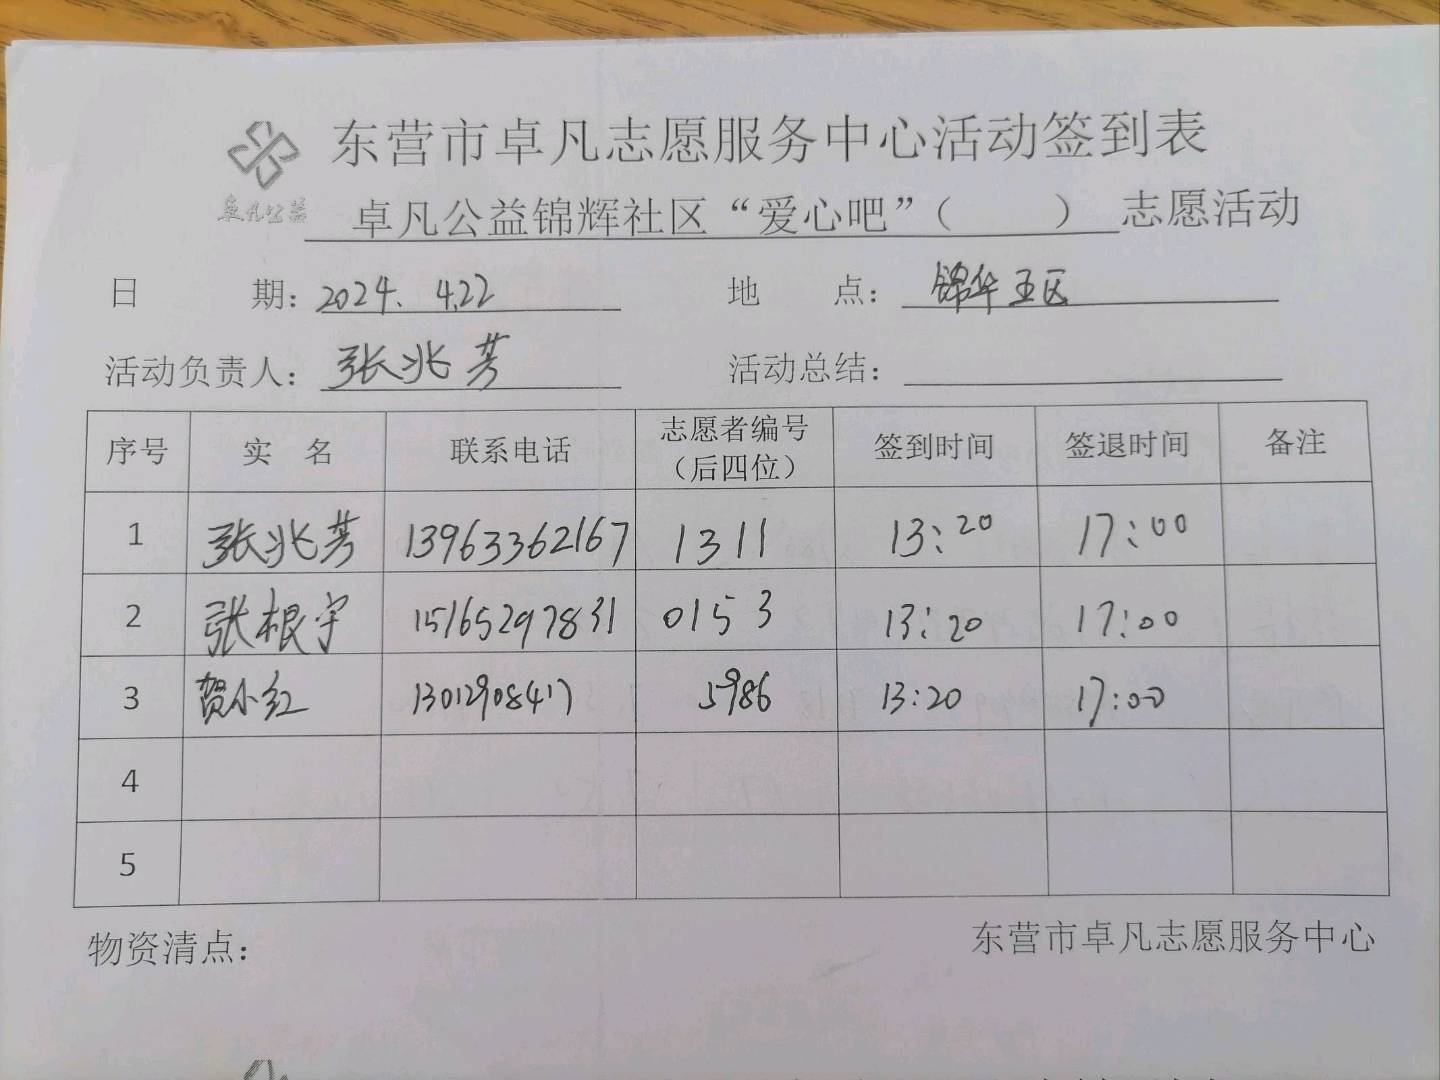 东营市卓凡志愿服务中心活动签到表
卓凡公益
卓凡公益锦辉社区“爱心吧”（ ）志愿活动
日 期：2024.4.22 地 点：锦华五区
活动负责人：张兆芳 活动总结：
序号 实 名 联系电话 志愿者编号（后四位） 签到时间 签退时间 备注
1 张兆芳 13963362167 1311 13:20 17:00
2 张根宇 15165297831 0153 13:20 17:00
3 贺小红 13012908417 5986 13:20 17:00
4
5
物资清点： 东营市卓凡志愿服务中心